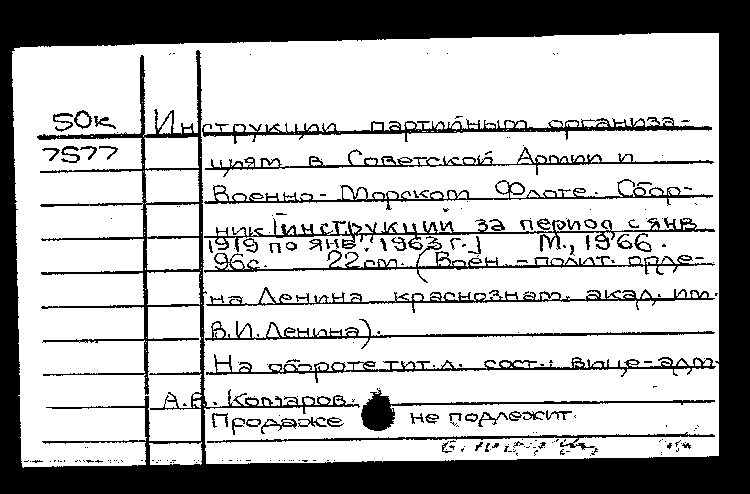 50к Инструкции партийным организа-
7577 циям в Советской Армии и
Военно-Морском Флоте. Сбор-
ник [инструкций за период с янв.
1919 по янв. 1963 г.] М., 1966.
96с. 22см. (Воен.-полит. орде-
на Ленина краснознам. акад. им.
В.И.Ленина).
На обороте тит.л. сост.: вице-адм.
А.В. Комаров.
Продаже не подлежит.